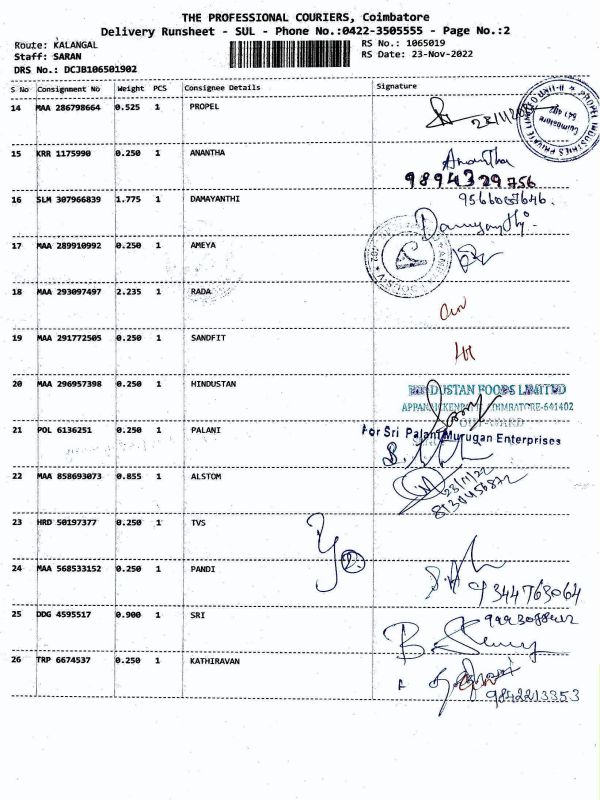 THE PROFESSIONAL COURIERS, Coimbatore
Delivery Runsheet - SUL - Phone No.:0422-3505555 - Page No.:2
Route: KALANGAL
RS No.: 1065019
Staff: SARAN
RS Date: 23-Nov-2022
DRS No.: DCJB106501902
S No Consignment No Weight PCS Consignee Details Signature
14 MAA 286798664 0.525 1 PROPEL
15 KRR 1175990 0.250 1 ANANTHA Anantha
9894329756
16 SLM 307966839 1.775 1 DAMAYANTHI
17 MAA 289910992 0.250 1 AMEYA
18 MAA 293097497 2.235 1 RADA
19 MAA 291772505 0.250 1 SANDFIT
20 MAA 296957398 0.250 1 HINDUSTAN HINDUSTAN FOODS LIMITED
COIMBATORE-641402
21 POL 6136251 0.250 1 PALANI For Sri Palani Murugan Enterprises
22 MAA 858693073 0.855 1 ALSTOM
23/11/22
23 HRD 50197377 0.250 1 TVS
24 MAA 568533152 0.250 1 PANDI
9344763064
25 DDG 4595517 0.900 1 SRI
26 TRP 6674537 0.250 1 KATHIRAVAN
9842213353